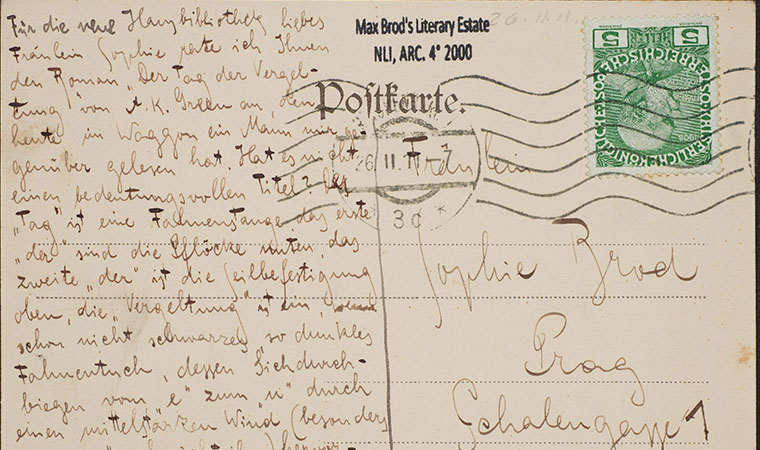 Für die neue Hausbibliothek liebes
Fräulein Sophie rate ich Ihnen
den Roman „Der Tag der Vergel-
tung" von A. K. Green an, den
heute in Waggon ein Mann mir ge-
genüber gelesen hat. Hat es nicht
einen bedeutungsvollen Titel? Der
„Tag" ist eine Fahnenstange, das erste
„der" sind die Pflöcke unten, das
zweite „der" ist die Seilbefestigung
oben, die „Vergeltung" ist ein,
schon nicht schwarzes so dunkles
Fahnentuch, dessen Sichdurch-
biegen vom „e" zum „u" durch
einen mittelstarken Wind (besonders
Max Brod's Literary Estate
NLI, ARC. 4° 2000
26.11.11
Postkarte.
26 II. 11-7
3c *
5 5
Fräulein
Sophie Brod
Prag
Schalengasse 1